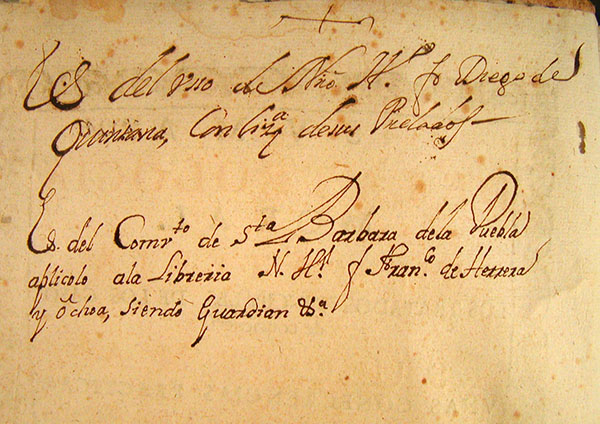 Es del vso de Nrõ H.º fr Diego de
Quintana, Con liz.ª de sus Prelados
Es. del Comv.to de S.ta Barbara dela Puebla
aplicolo ala Libreria N. H.º fr Fran.co de Herrera
y Ochoa, siendo Guardian &.a